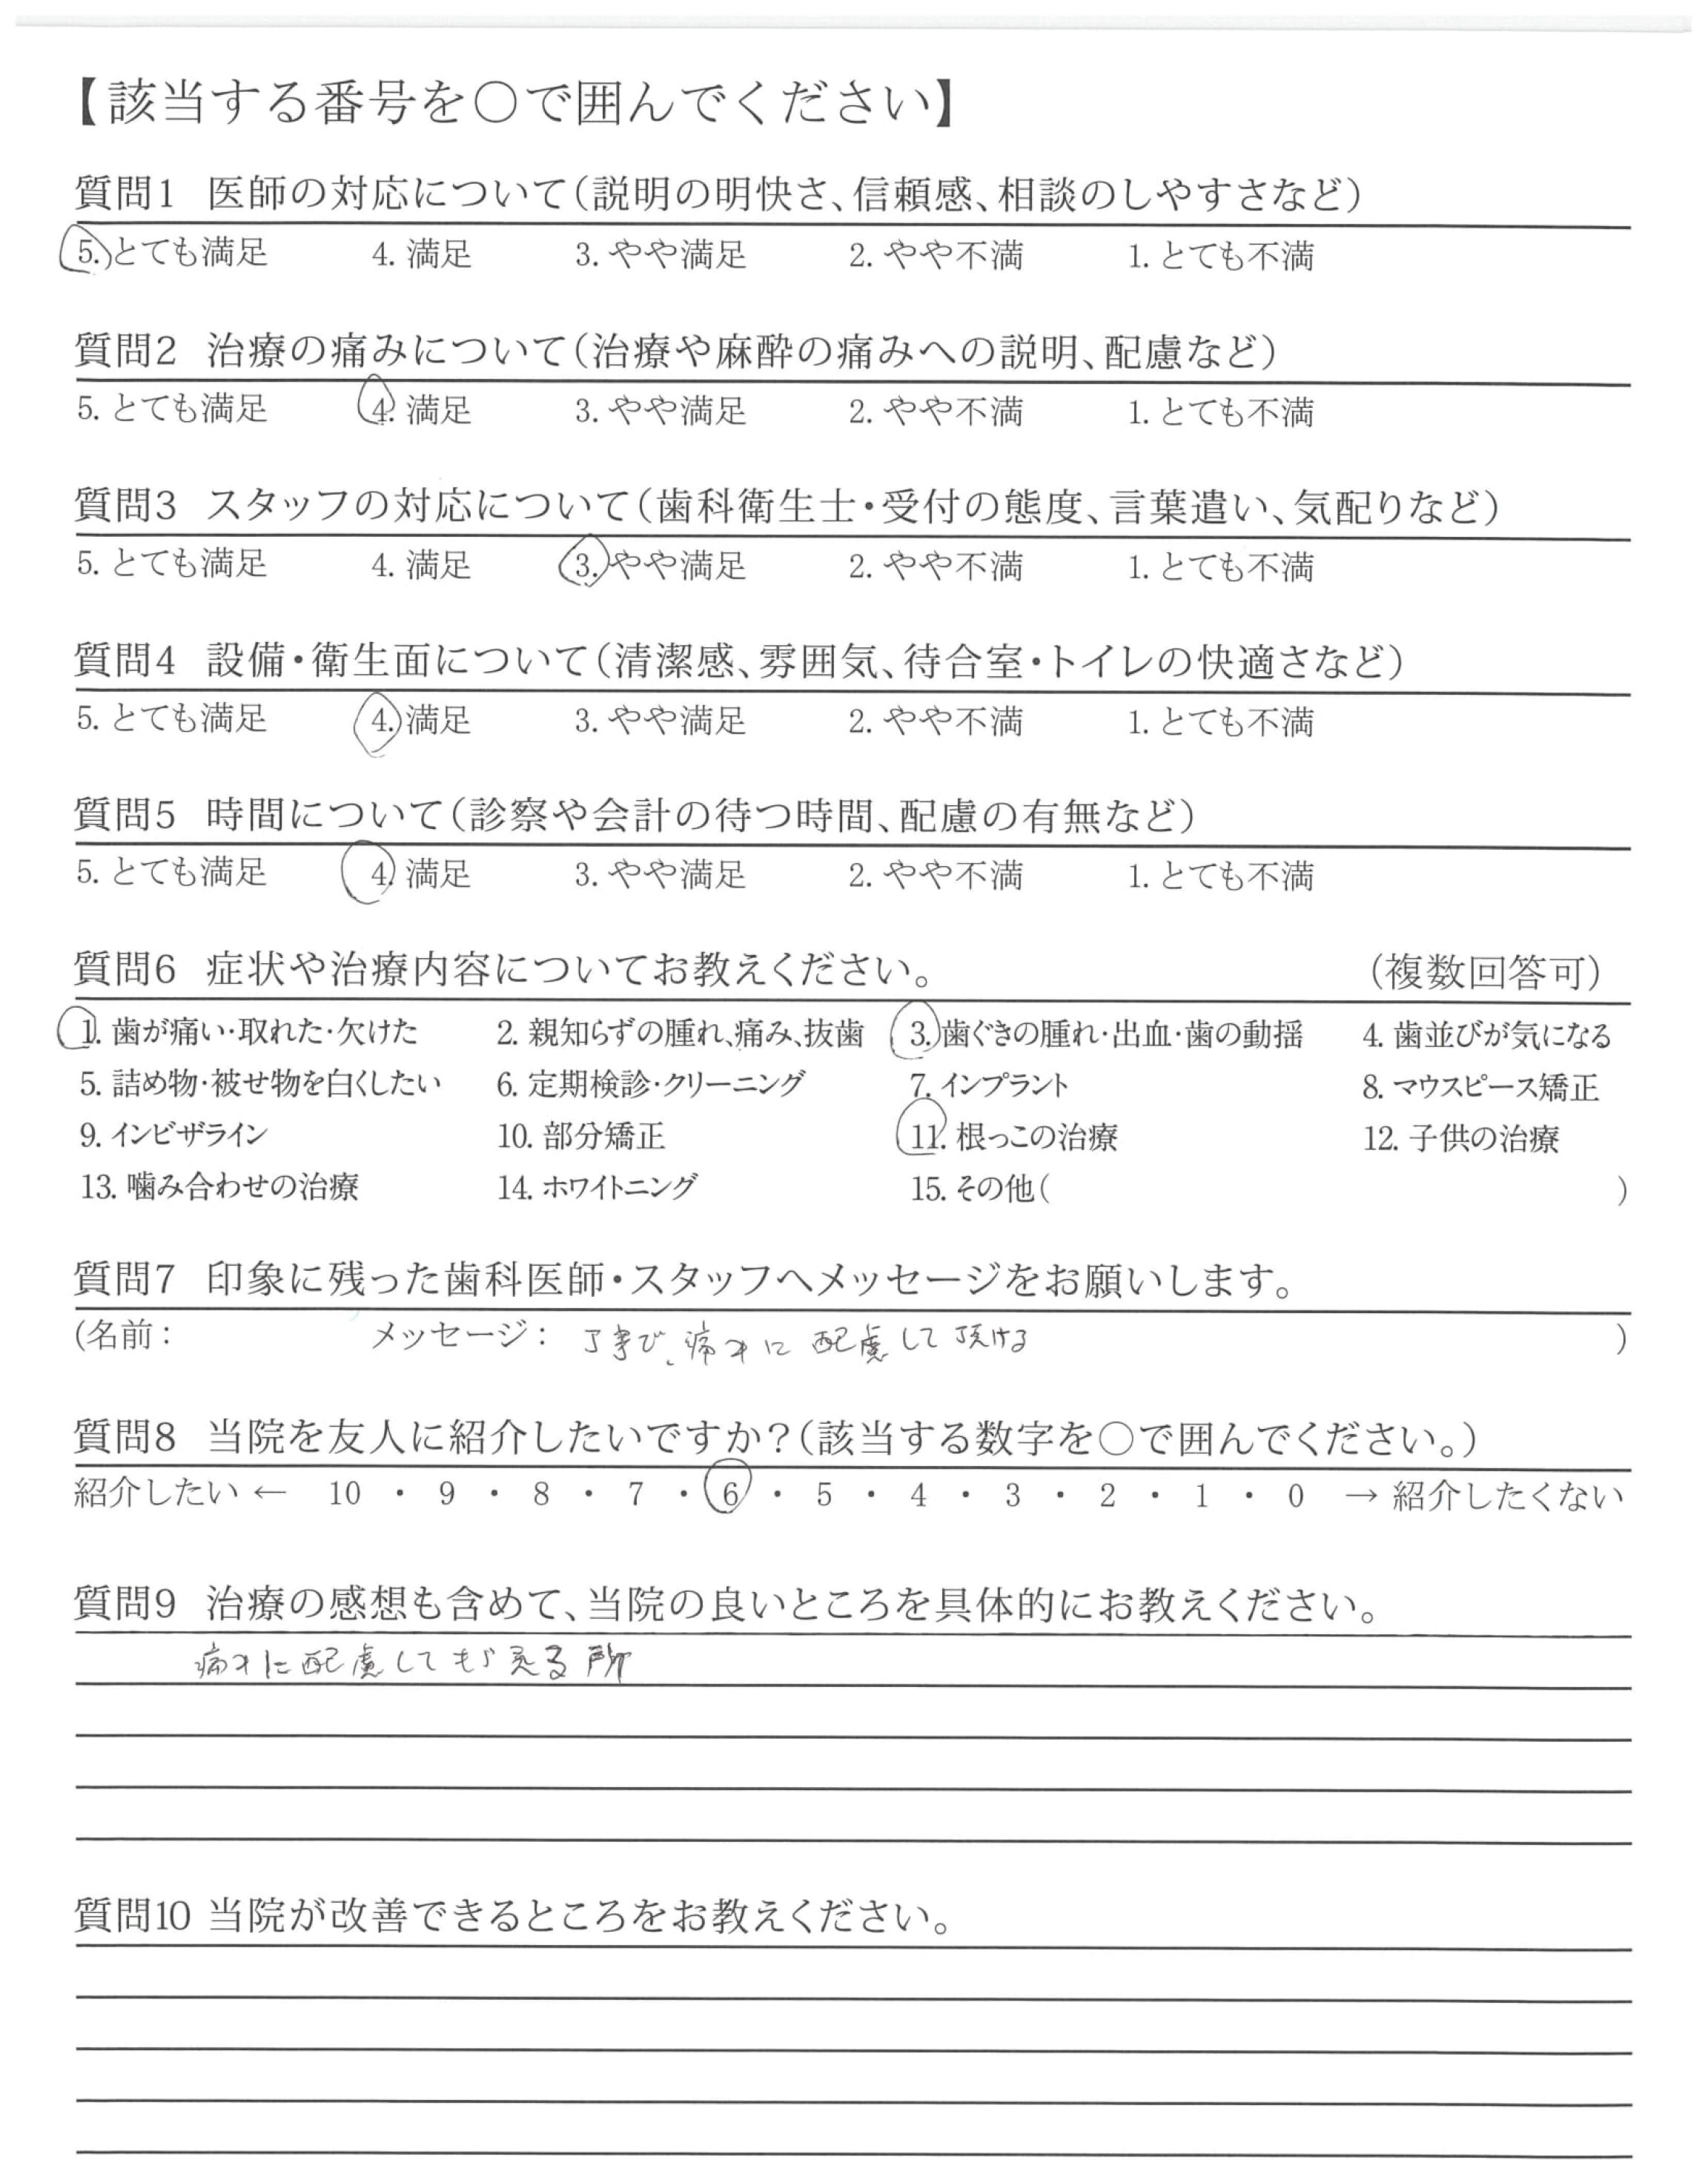 【該当する番号を〇で囲んでください】
質問1 医師の対応について(説明の明快さ、信頼感、相談のしやすさなど)
5. とても満足 4. 満足 3. やや満足 2. やや不満 1. とても不満
質問2 治療の痛みについて(治療や麻酔の痛みへの説明、配慮など)
5. とても満足 4. 満足 3. やや満足 2. やや不満 1. とても不満
質問3 スタッフの対応について(歯科衛生士・受付の態度、言葉遣い、気配りなど)
5. とても満足 4. 満足 3. やや満足 2. やや不満 1. とても不満
質問4 設備・衛生面について(清潔感、雰囲気、待合室・トイレの快適さなど)
5. とても満足 4. 満足 3. やや満足 2. やや不満 1. とても不満
質問5 時間について(診察や会計の待つ時間、配慮の有無など)
5. とても満足 4. 満足 3. やや満足 2. やや不満 1. とても不満
質問6 症状や治療内容についてお教えください。 (複数回答可)
1. 歯が痛い・取れた・欠けた 2. 親知らずの腫れ、痛み、抜歯 3. 歯ぐきの腫れ・出血・歯の動揺 4. 歯並びが気になる
5. 詰め物・被せ物を白くしたい 6. 定期検診・クリーニング 7. インプラント 8. マウスピース矯正
9. インビザライン 10. 部分矯正 11. 根っこの治療 12. 子供の治療
13. 噛み合わせの治療 14. ホワイトニング 15. その他( )
質問7 印象に残った歯科医師・スタッフへメッセージをお願いします。
(名前: メッセージ: 丁寧で、痛みに配慮して頂ける )
質問8 当院を友人に紹介したいですか?(該当する数字を〇で囲んでください。)
紹介したい ← 10 ・ 9 ・ 8 ・ 7 ・ 6 ・ 5 ・ 4 ・ 3 ・ 2 ・ 1 ・ 0 → 紹介したくない
質問9 治療の感想も含めて、当院の良いところを具体的にお教えください。
痛みに配慮してもらえる所
質問10 当院が改善できるところをお教えください。